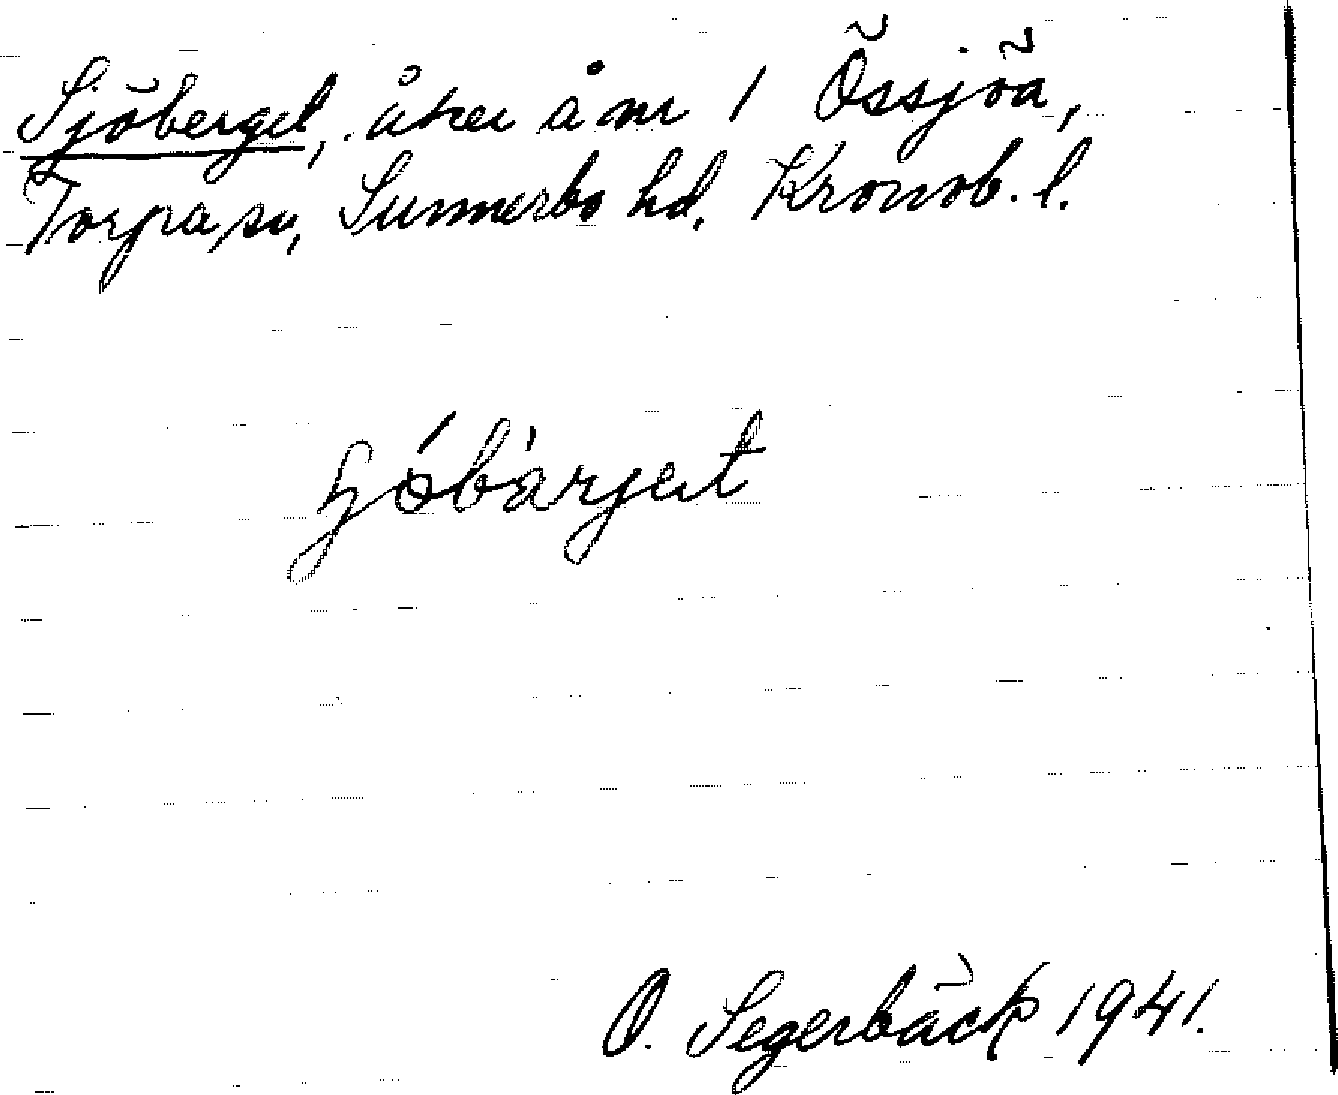 Sjöberget, åker å nr 1 Össjöa,
Torpa sn, Sunnerbo hd. Kronob. l.
O. Segerbäck 1941.